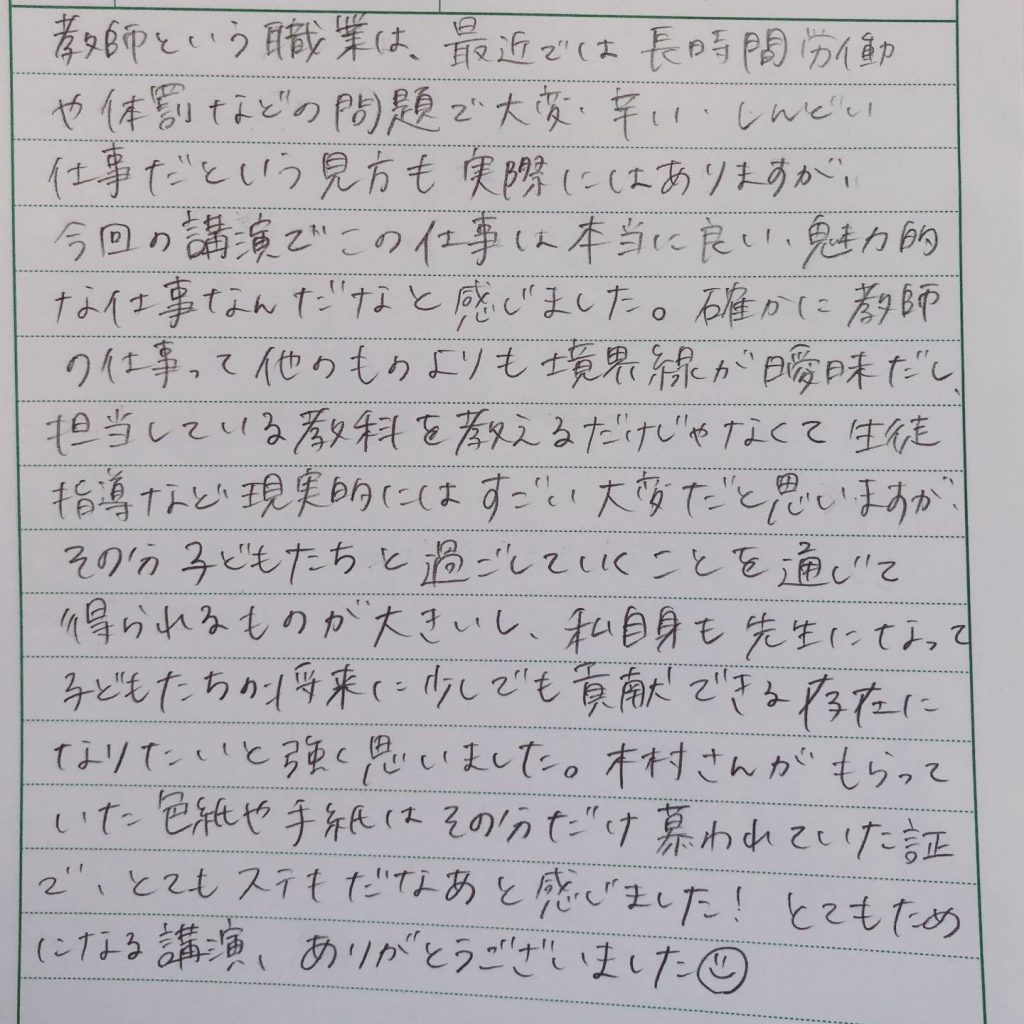 教師という職業は、最近では長時間労働
や体罰などの問題で大変・辛い・しんどい
仕事だという見方も実際にはありますが、
今回の講演でこの仕事は本当に良い、魅力的
な仕事なんだなと感じました。確かに教師
の仕事って他のものよりも境界線が曖昧だし、
担当している教科を教えるだけじゃなくて生徒
指導など現実的にはすごい大変だと思いますが、
その分子どもたちと過ごしていくことを通じて
得られるものが大きいし、私自身も先生になって
子どもたちの将来に少しでも貢献できる存在に
なりたいと強く思いました。木村さんがもらって
いた色紙や手紙はその分だけ慕われていた証
で、とてもステキだなあと感じました！とてもため
になる講演、ありがとうございました☺